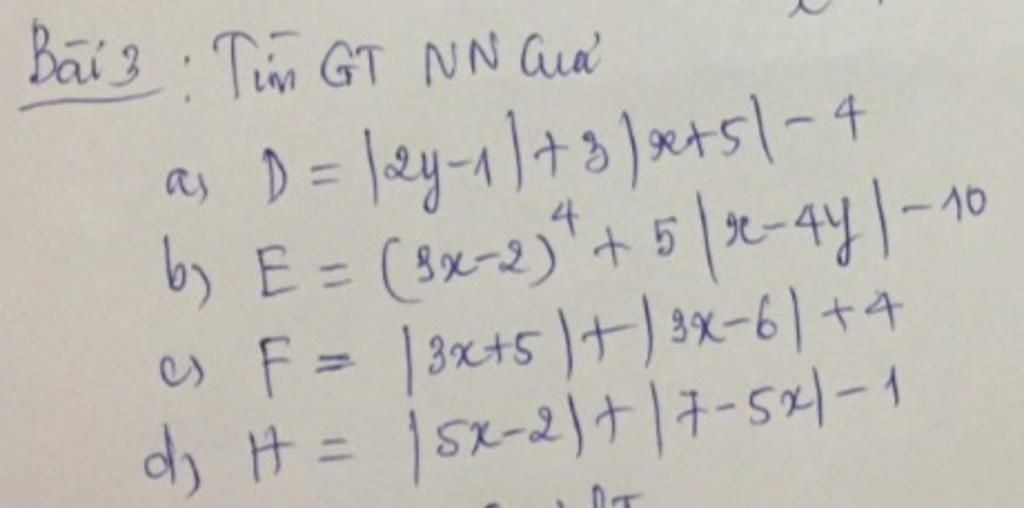 Bài 3 : Tìm GT NN của
a, D = |2y-1|+3|x+5|-4
b, E = (3x-2)⁴+5|x-4y|-10
c, F = |3x+5|+|3x-6|+4
d, H = |5x-2|+|7-5x|-1